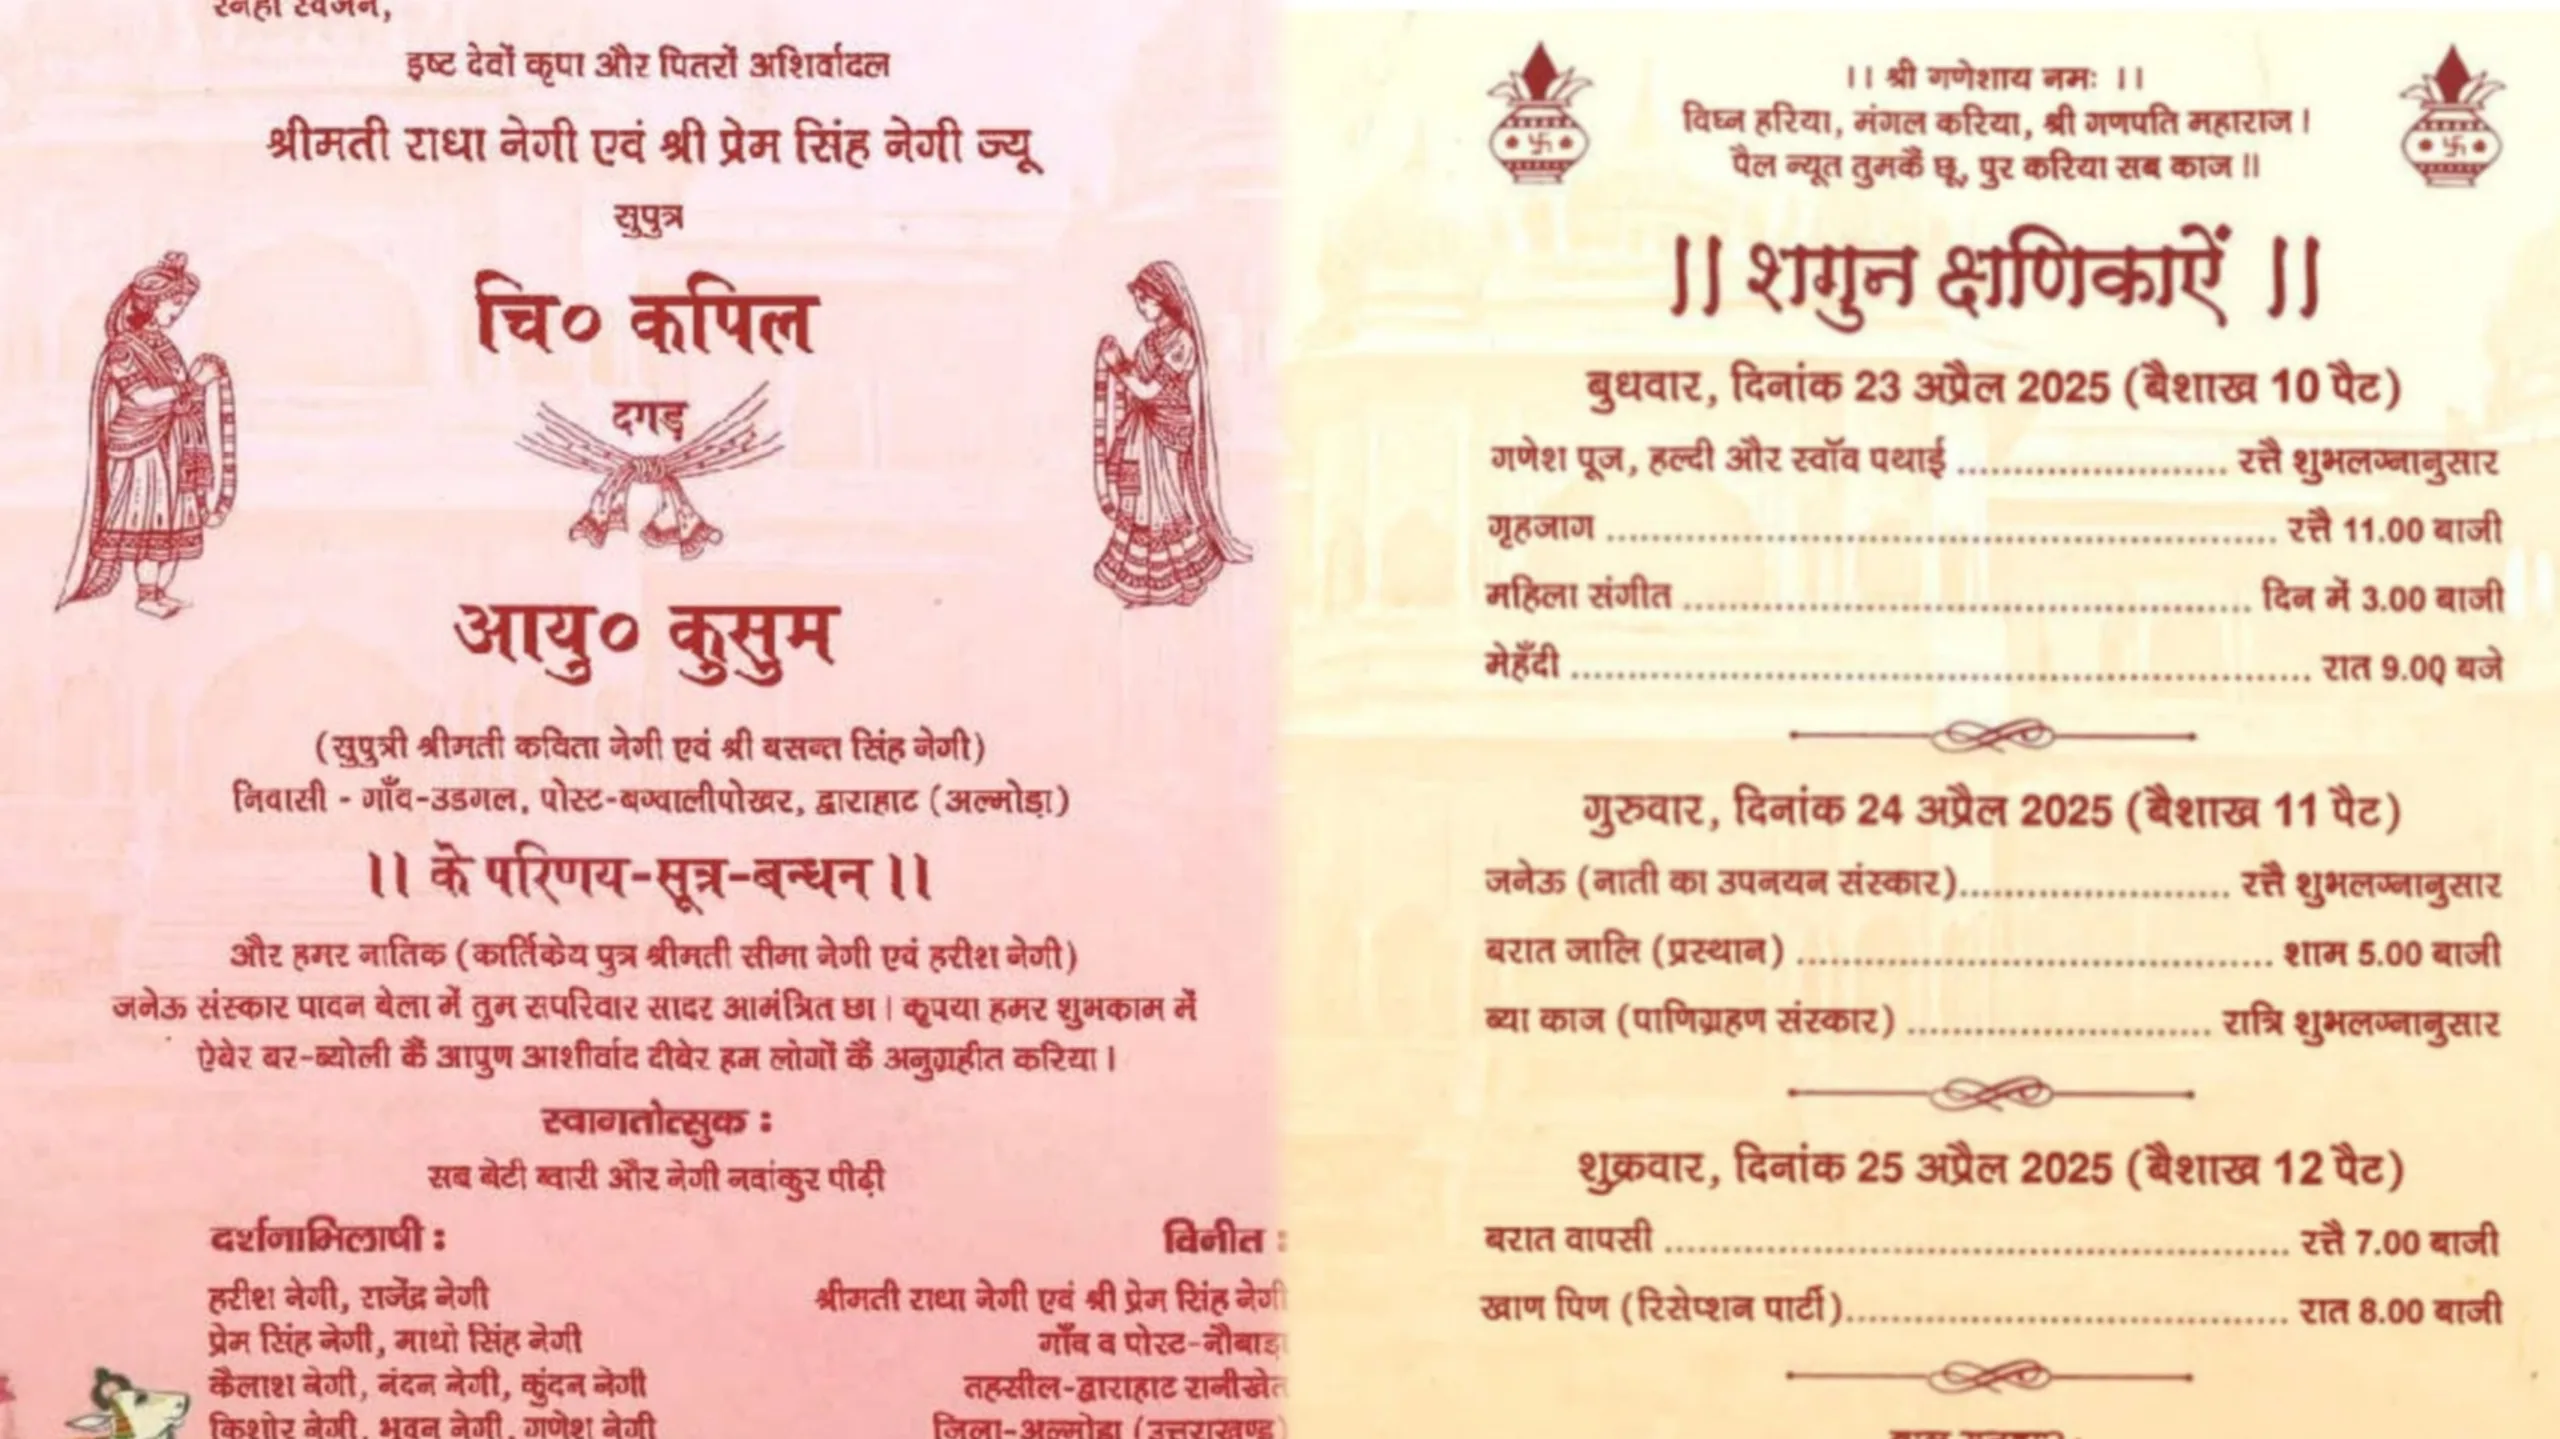 स्नेही स्वजन,
इष्ट देवों कृपा और पितरों अशिर्वादल
श्रीमती राधा नेगी एवं श्री प्रेम सिंह नेगी ज्यू
सुपुत्र
चि० कपिल
दगड़
आयु० कुसुम
(सुपुत्री श्रीमती कविता नेगी एवं श्री बसन्त सिंह नेगी)
निवासी - गाँव-उडगल, पोस्ट-बग्वालीपोखर, द्वाराहाट (अल्मोड़ा)
।। के परिणय-सूत्र-बन्धन ।।
और हमर नातिक (कार्तिकेय पुत्र श्रीमती सीमा नेगी एवं हरीश नेगी)
जनेऊ संस्कार पावन बेला में तुम सपरिवार सादर आमंत्रित छा। कृपया हमर शुभकाम में
ऐबेर बर-ब्योली कैं आपुण आशीर्वाद दीबेर हम लोगों कैं अनुग्रहीत करिया।
स्वागतोत्सुक :
सब बेटी ब्वारी और नेगी नवांकुर पीढ़ी
दर्शनाभिलाषी :
हरीश नेगी, राजेंद्र नेगी
प्रेम सिंह नेगी, माधो सिंह नेगी
कैलाश नेगी, नंदन नेगी, कुंदन नेगी
किशोर नेगी, भुवन नेगी, गणेश नेगी
विनीत :
श्रीमती राधा नेगी एवं श्री प्रेम सिंह नेगी
गाँव व पोस्ट-नौबाड़ा
तहसील-द्वाराहाट रानीखेत
जिला-अल्मोड़ा (उत्तराखण्ड)
।। श्री गणेशाय नमः ।।
विघ्न हरिया, मंगल करिया, श्री गणपति महाराज।
पैल न्यूत तुमकैं छू, पुर करिया सब काज॥
।। शगुन क्षणिकाऐं ।।
बुधवार, दिनांक 23 अप्रैल 2025 (बैशाख 10 पैट)
गणेश पूज, हल्दी और स्वॉव पथाई ........................... रत्तै शुभलग्नानुसार
गृहजाग ................................................................... रत्तै 11.00 बाजी
महिला संगीत ......................................................... दिन में 3.00 बाजी
मेहँदी .......................................................................... रात 9.00 बजे
गुरुवार, दिनांक 24 अप्रैल 2025 (बैशाख 11 पैट)
जनेऊ (नाती का उपनयन संस्कार)........................... रत्तै शुभलग्नानुसार
बरात जालि (प्रस्थान) ................................................ शाम 5.00 बाजी
ब्या काज (पाणिग्रहण संस्कार) .............................. रात्रि शुभलग्नानुसार
शुक्रवार, दिनांक 25 अप्रैल 2025 (बैशाख 12 पैट)
बरात वापसी .............................................................. रत्तै 7.00 बाजी
खाण पिण (रिसेप्शन पार्टी)............................................ रात 8.00 बाजी